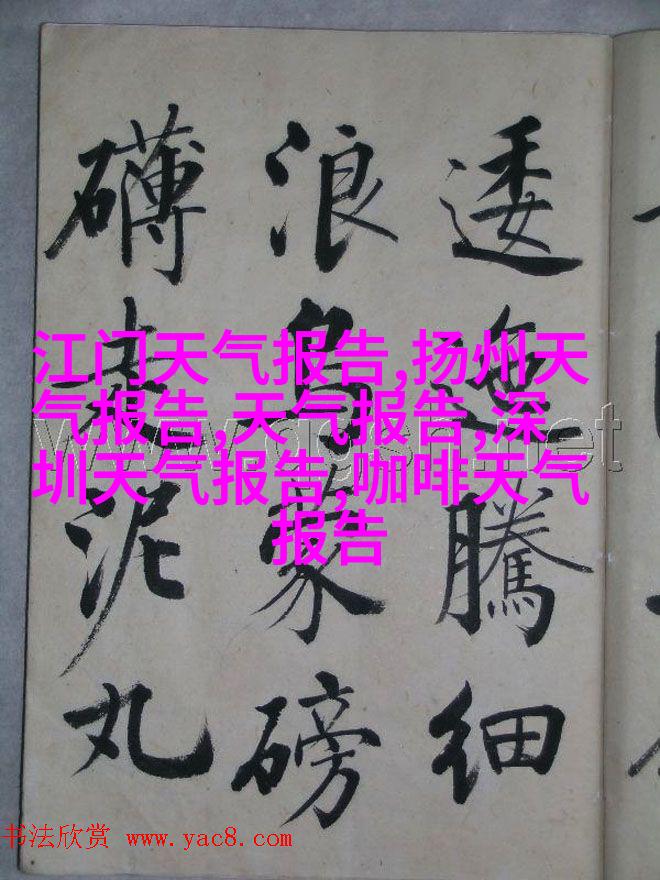 逶迤騰細
浪烏蒙磅
礴走泥丸
江门天气报告,扬州天
气报告,天气报告,深
圳天气报告,咖啡天气
报告
书法欣赏 www.yac8.com